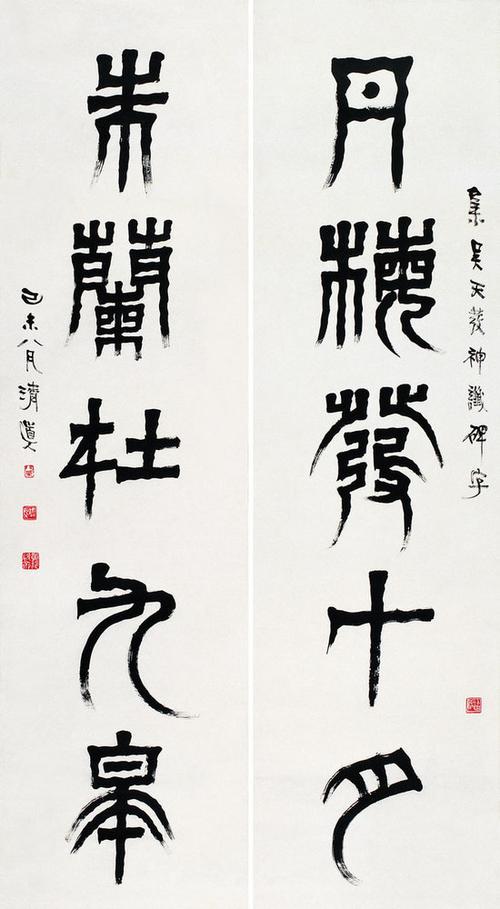 集吳天發神讖碑字
丹發十月
朱蘭杜九皋
己未八月清道人